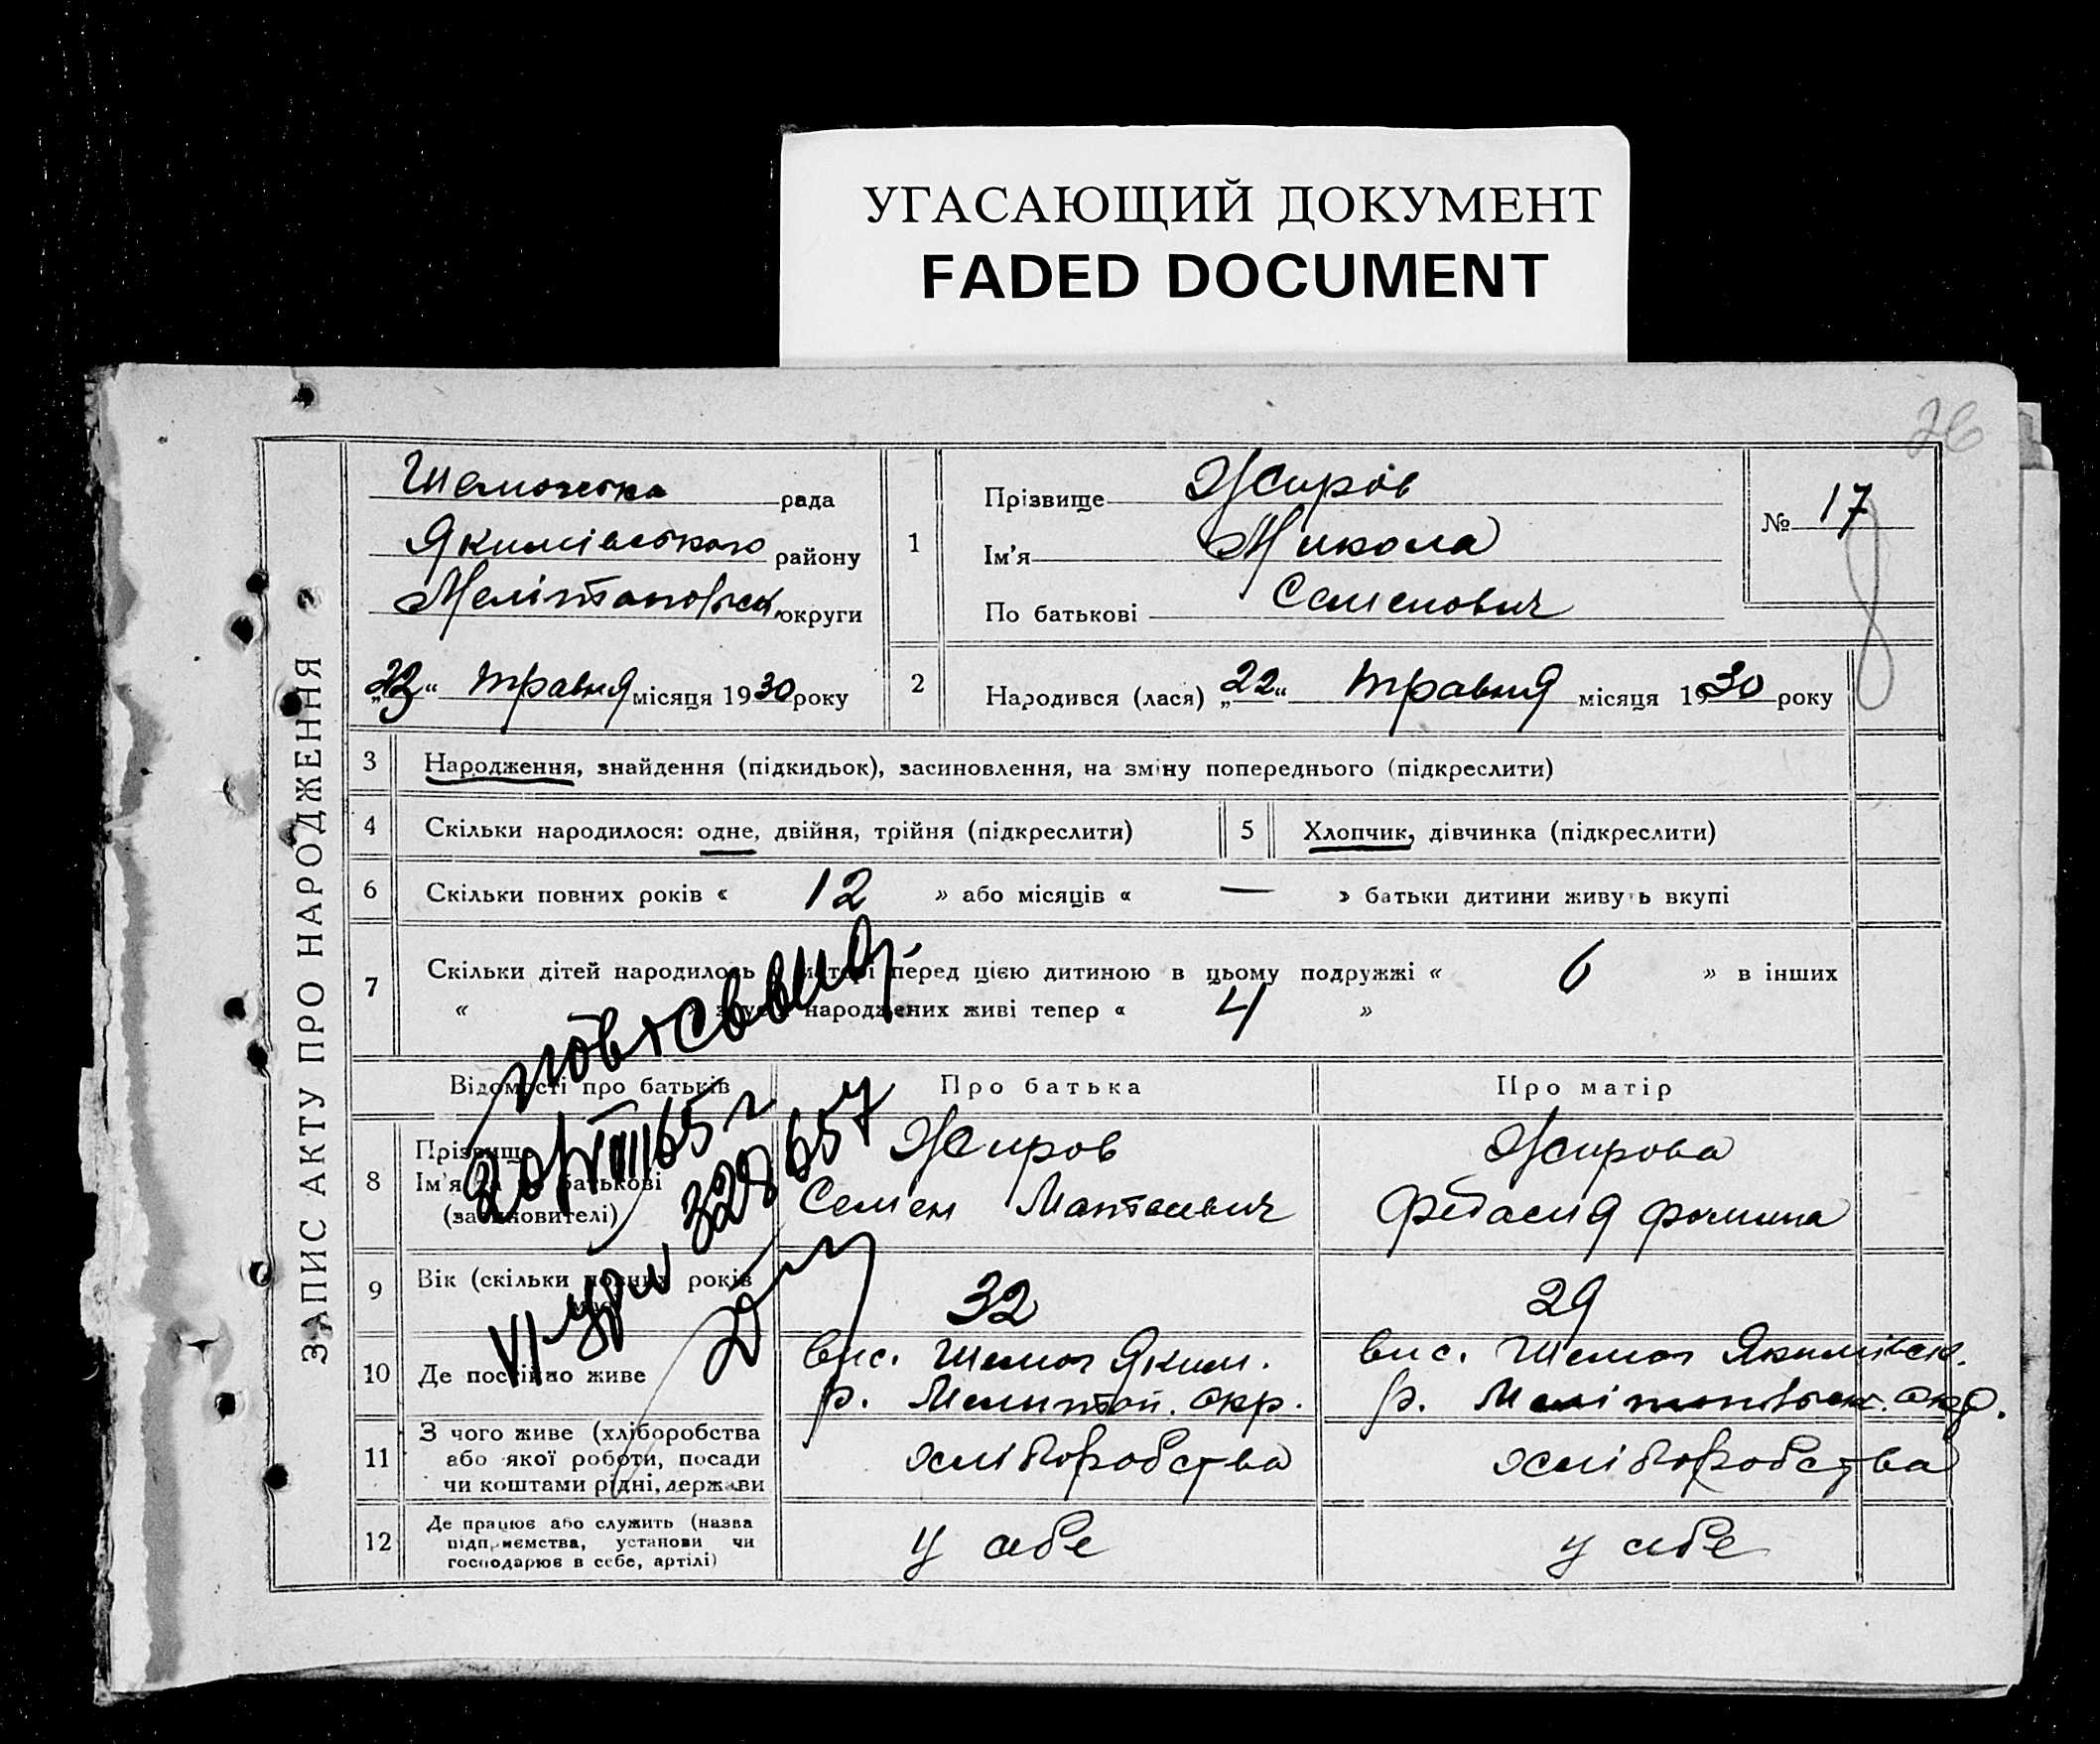 УГАСАЮЩИЙ ДОКУМЕНТ
FADED DOCUMENT
26
ЗАПИС АКТУ ПРО НАРОДЖЕННЯ
рада
Якимівського району
округи
23 травня місяця 1930 року
1
Прізвище Жиров
Ім'я Микола
По батькові Семенович
№ 17
2
Народився (лася) „22" травня місяця 1930 року
3 Народження, знайдення (підкидьок), засиновлення, на зміну попереднього (підкреслити)
4 Скільки народилося: одне, двійня, трійня (підкреслити)
5 Хлопчик, дівчинка (підкреслити)
6 Скільки повних років « 12 » або місяців « — » батьки дитини живуть вкупі
7 Скільки дітей народилось матері перед цією дитиною в цьому подружжі « 6 » в інших
« з усіх народжених живі тепер « 4 »
328657
Відомості про батьків
Про батька
Про матір
8 Прізвище
Ім'я та по батькові
(засиновителі)
Жиров
Семен
Жирова
9 Вік (скільки повних років
має)
32
29
10 Де постійно живе
вис. Шемот Яким.
р. Мелитоп. окр.
вис. Шемот Якимівськ.
р. окр.
11 З чого живе (хліборобства
або якої роботи, посади
чи коштами рідні, держави
хліборобства
хліборобства
12 Де працює або служить (назва
підприємства, установи чи
господарює в себе, артілі)
у себе
у себе